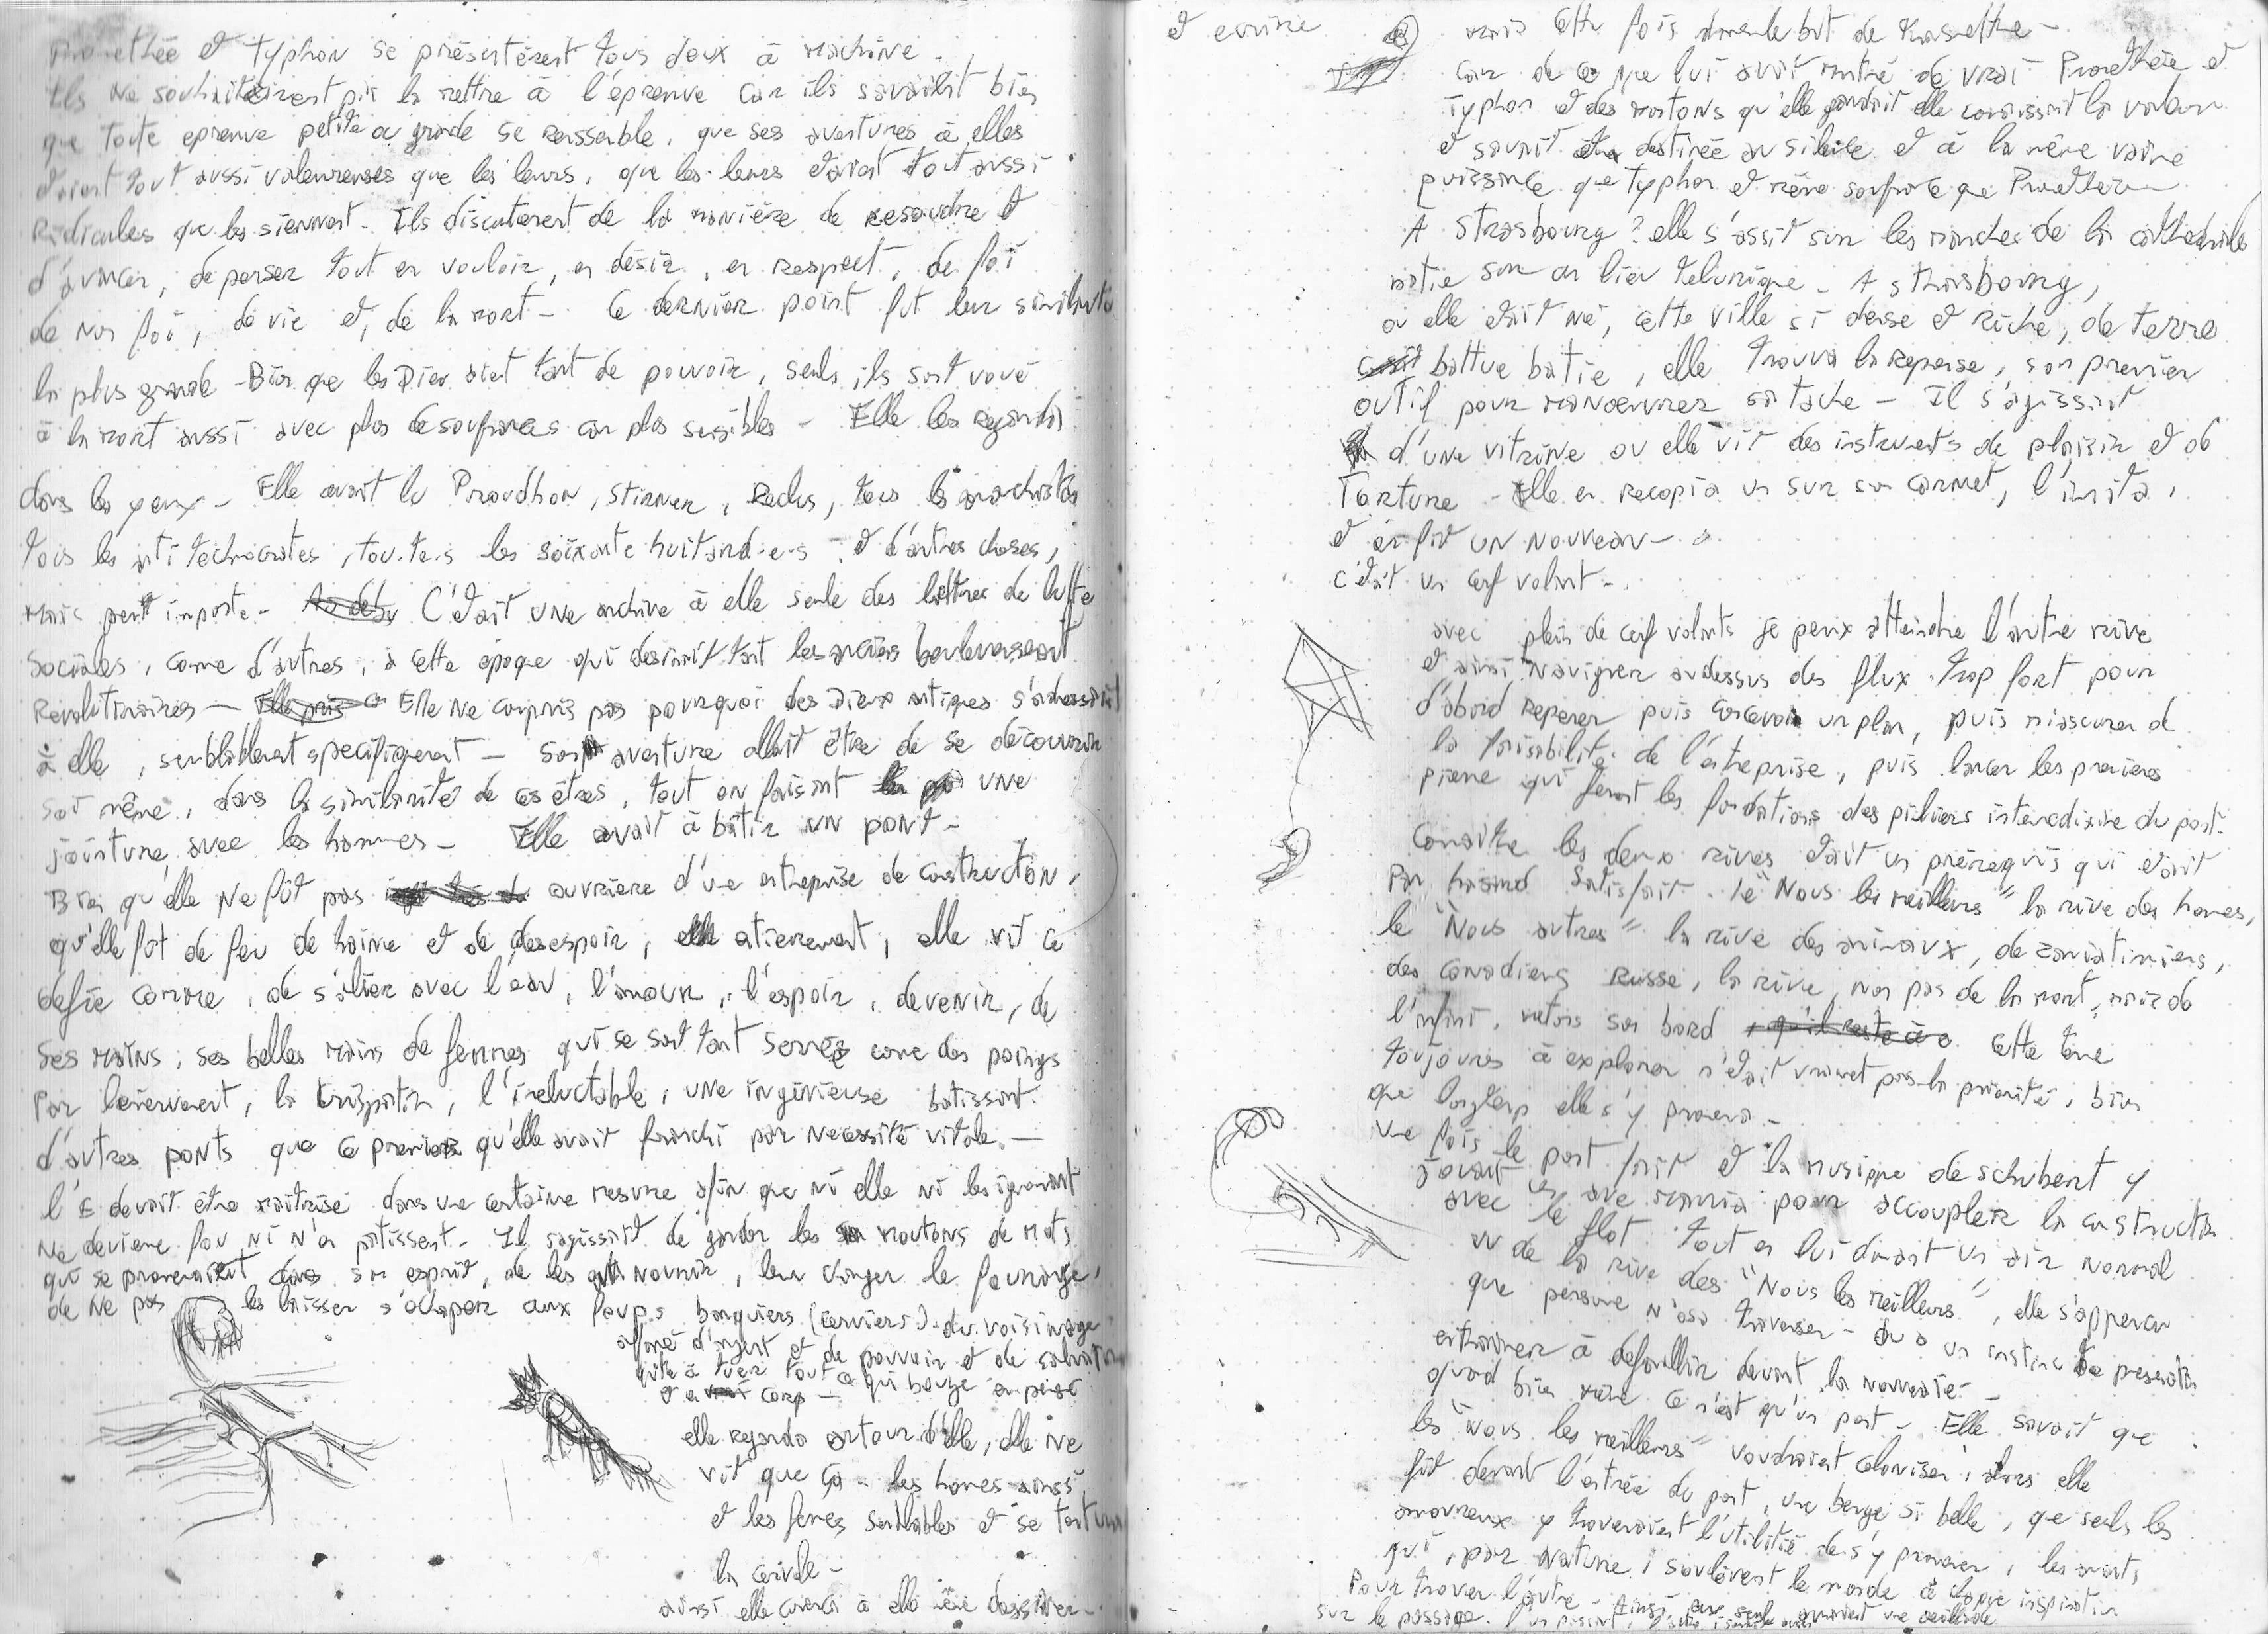 Prométhée et Typhon se présentèrent tous deux à machine -
Ils ne souhaitèrent pas la mettre à l'épreuve car ils savaient bien
que toute epreuve petite ou grande se ressemble, que ses aventures à elles
étaient tout aussi valeureuses que les leurs, que les leurs étaient tout aussi
Ridicules que les siennent - Ils discutèrent de la manière de resoudre et
d'avancer, de penser tout en vouloir, en désir, en respect, de foi
de non foi, de vie et, de la mort - Ce dernier point fut leur similitude
la plus grande - Bien que les Dieu aient tant de pouvoir, seuls, ils sont voué
à la mort aussi avec plus de souffrances car plus sensibles - Elle les regarda
dans les yeux - Elle avait lu Proudhon, Stirner, Reclus, tous les anarchistes
tous les anti technocrates, tou.te.s les soixante huitard-e-s - et d'autres choses,
mais peut importe - C'était une archive à elle seule des lettres de lutte
Sociales, comme d'autres, à cette époque qui desirait tant les anciens bouleversement
Revolutionaires - Elle ne compris pas pourquoi des Dieux antiques s'adressaient
à elle, semblablement specifiquement - Son aventure allait être de se découvrir
soi même, dans la similarité de ces êtres, tout en faisant une
jointure avec les hommes - Elle avait à bâtir un pont -
Bien qu'elle ne fût pas ouvrière d'une entreprise de construction,
qu'elle fut de feu de haine et de desespoir, entierement, elle vit ce
defie comme, de s'allier avec l'eau, l'amour, l'espoir, devenir, de
ses mains, ses belles mains de femmes qui se sont tant serrées comme des poings
Par l'énervement, la crispation, l'ineluctable, une ingénieuse batissant
d'autres ponts que ce premier qu'elle avait franchi par necessité vitale. -
l'E devait être maitrisé dans une certaine mesure afin que ni elle ni les ignorant
ne devienne fou ni n'en patissent - Il s'agissait de garder les moutons de mots
qui se promenaient dans son esprit, de les nourrir, leur changer le fourrage,
de ne pas les laisser s'echaper aux loups banquiers (cerviers) du voisinage
affamé d'argent et de pouvoir et de
à tuer tout ce qui bouge en pensé
et en corp -
elle regarda autour d'elle, elle ne
vit que ça - les hommes ainsi
et les femmes semblables et se tortura
la cervelle -
ainsi elle commença à elle même dessiner -
et ecrire
mais cette fois dans le but de
Car de ce que lui avait montré de vrai Prométhée et
Typhon et des moutons qu'elle gardait elle connaissait la valeur
et savait destinée au silence et à la même vaine
puissance que Typhon et même souffrance que Prométhée
A Strasbourg ? elle s'assit sur les marches de la cathédrale
batie sur un lieu telurique - A Strasbourg,
ou elle était né, cette ville si dense et riche, de terre
battue batie, elle trouva la reponse, son premier
outil pour manoeuvrer sa tache - Il s'agissait
d'une vitrine ou elle vit des instruments de plaisir et de
Torture - Elle en recopia un sur son carnet, l'imita,
et en fit un nouveau -
c'était un cerf volant -
avec plein de cerf volants je peux atteindre l'autre rive
et ainsi naviguer audessus des flux trop fort pour
d'abord reperer puis concevoir un plan, puis m'assurer de
la faisabilité de l'entreprise, puis lancer les premières
pierre qui feront les fondations des piliers intermediaire du pont.
Connaitre les deux rives était un prérequis qui était
Par hasard satisfait. le "Nous les meilleurs" la rive des hommes,
le "Nous autres" la rive des animaux, de
des canadiens Russe, la rive, non pas de la mort, mais de
l'infini, son bord cette terre
toujours à explorer n'était vraiment pas la priorité, bien
que longtemp elle s'y promena -
Une fois le pont fait et la musique de schubert y
jouait un ave maria pour accoupler la construction
avec le flot. tout en lui donnant un air normal
vu de la rive des "Nous les meilleurs", elle s'apperçu
que personne n'osa traverser - du a un instinc de
à defaillir devant la nouveauté -
quand bien même ce n'est qu'un pont - Elle savait que
les "nous les meilleurs" voudraient coloniser, alors elle
fit devant l'entrée du pont, une berge si belle, que seuls les
amoureux y trouveraient l'utilité de s'y promener, les amants
qui, par nature, soulèvent le monde à chaque inspiration
Pour trouver l'autre - Ainsi eux seuls
sur le passage.